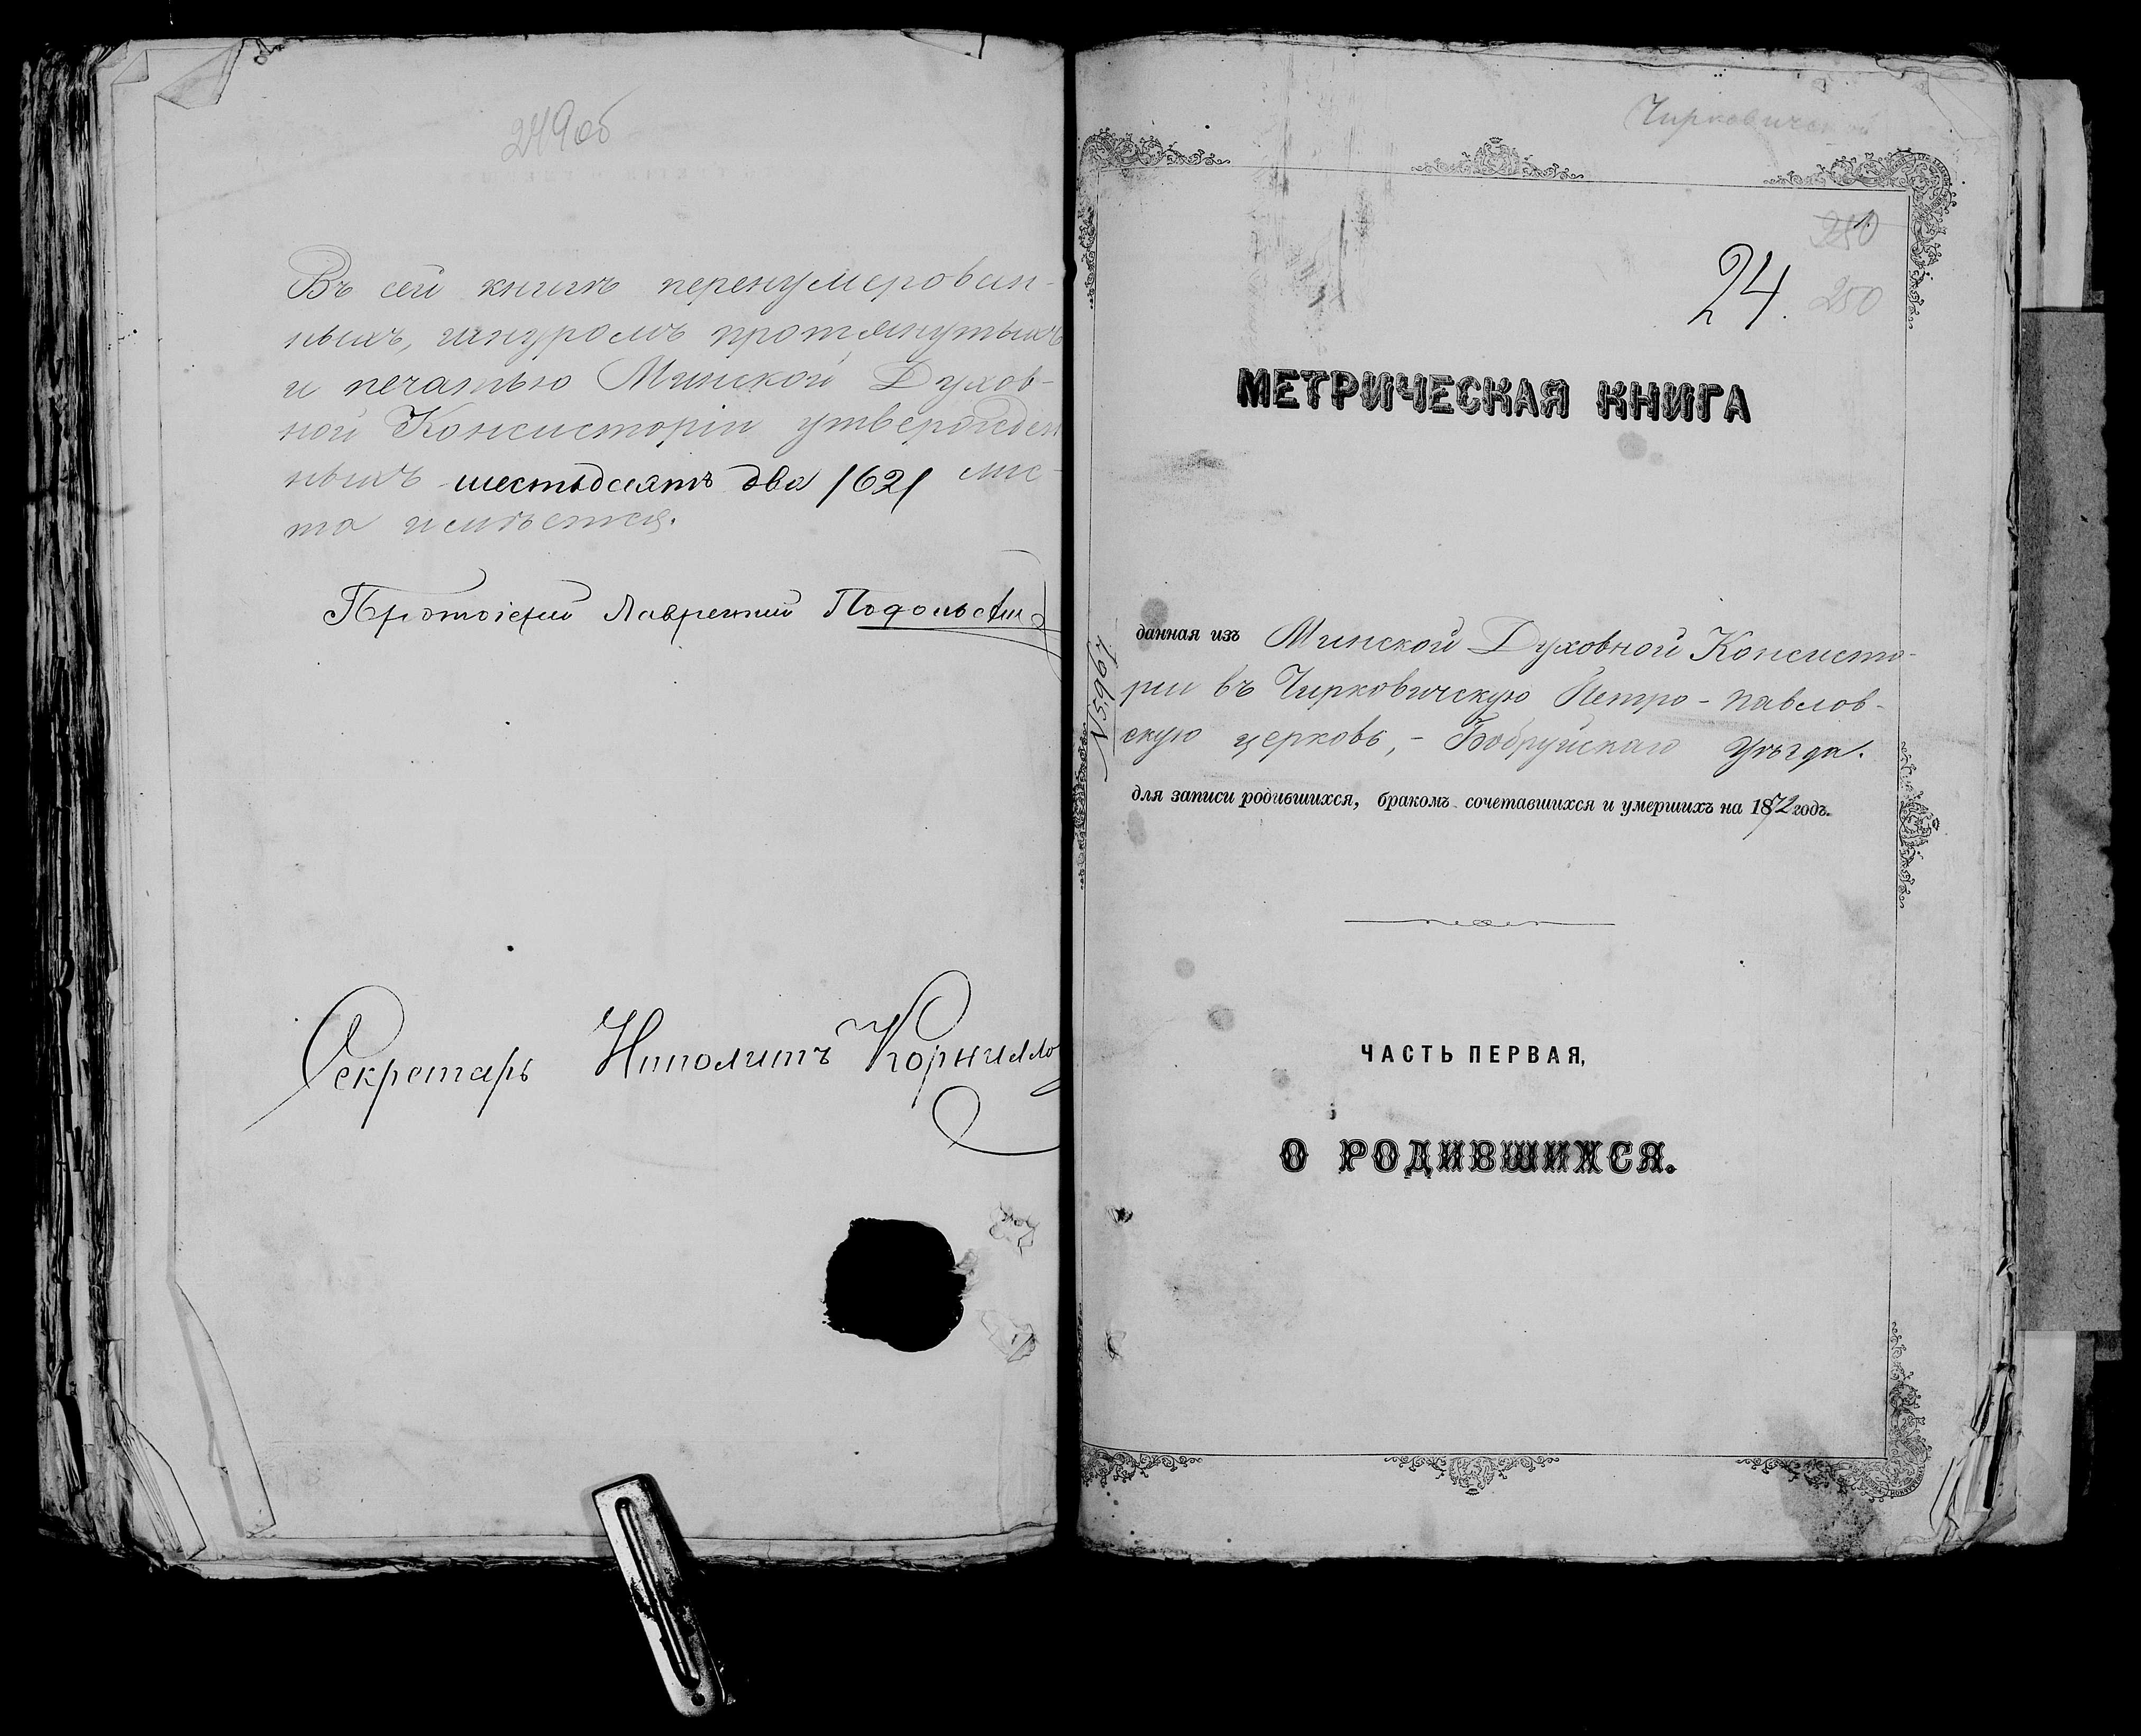 249об
Въ сей книгѣ перенумерован-
ныхъ, шнуромъ протянутыхъ
и печатью Минской Духов-
ной Консисторіи утвержден
ныхъ шестьдесятъ два /62/ лис-
та имѣется.
Протоіерей Лаврентій Подольскій
Секретарь Ипполитъ Корнилло
Чирковической
250
24. 250
МЕТРИЧЕСКАЯ КНИГА
№5964.
данная изъ Минской Духовной Консисто-
ріи въ Чирковичскую Петро-Павлов-
скую церковь, - Бобруйскаго уѣзда.
для записи родившихся, бракомъ сочетавшихся и умершихъ на 1872 годъ.
ЧАСТЬ ПЕРВАЯ,
О РОДИВШИХСЯ.